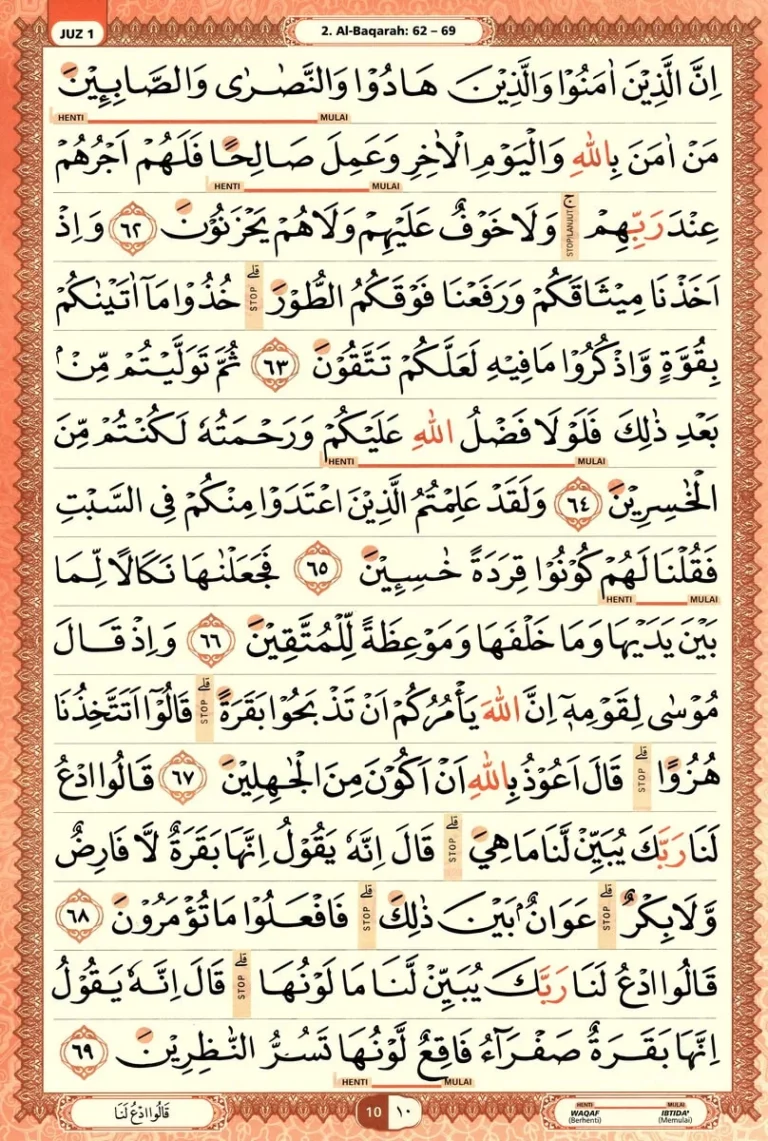 JUZ 1
2. Al-Baqarah: 62 – 69
اِنَّ الَّذِيْنَ اٰمَنُوْا وَالَّذِيْنَ هَادُوْا وَالنَّصٰرٰى وَالصَّابِـِٕيْنَ
HENTI MULAI
مَنْ اٰمَنَ بِاللّٰهِ وَالْيَوْمِ الْاٰخِرِ وَعَمِلَ صَالِحًا فَلَهُمْ اَجْرُهُمْ
HENTI MULAI
عِنْدَ رَبِّهِمْ ۚ وَلَا خَوْفٌ عَلَيْهِمْ وَلَا هُمْ يَحْزَنُوْنَ ٦٢ وَاِذْ
STOP/LANJUT
اَخَذْنَا مِيْثَاقَكُمْ وَرَفَعْنَا فَوْقَكُمُ الطُّوْرَۗ خُذُوْا مَآ اٰتَيْنٰكُمْ
STOP
بِقُوَّةٍ وَّاذْكُرُوْا مَا فِيْهِ لَعَلَّكُمْ تَتَّقُوْنَ ٦٣ ثُمَّ تَوَلَّيْتُمْ مِّنْۢ
بَعْدِ ذٰلِكَ فَلَوْلَا فَضْلُ اللّٰهِ عَلَيْكُمْ وَرَحْمَتُهٗ لَكُنْتُمْ مِّنَ
HENTI MULAI
الْخٰسِرِيْنَ ٦٤ وَلَقَدْ عَلِمْتُمُ الَّذِيْنَ اعْتَدَوْا مِنْكُمْ فِى السَّبْتِ
فَقُلْنَا لَهُمْ كُوْنُوْا قِرَدَةً خٰسِـِٕيْنَ ٦٥ فَجَعَلْنٰهَا نَكَالًا لِّمَا
HENTI MULAI
بَيْنَ يَدَيْهَا وَمَا خَلْفَهَا وَمَوْعِظَةً لِّلْمُتَّقِيْنَ ٦٦ وَاِذْ قَالَ
مُوْسٰى لِقَوْمِهٖٓ اِنَّ اللّٰهَ يَأْمُرُكُمْ اَنْ تَذْبَحُوْا بَقَرَةًۗ قَالُوْٓا اَتَتَّخِذُنَا
STOP
هُزُوًاۗ قَالَ اَعُوْذُ بِاللّٰهِ اَنْ اَكُوْنَ مِنَ الْجٰهِلِيْنَ ٦٧ قَالُوا ادْعُ
STOP
لَنَا رَبَّكَ يُبَيِّنْ لَّنَا مَا هِيَۗ قَالَ اِنَّهٗ يَقُوْلُ اِنَّهَا بَقَرَةٌ لَّا فَارِضٌ
STOP
وَّلَا بِكْرٌۗ عَوَانٌۢ بَيْنَ ذٰلِكَۗ فَافْعَلُوْا مَا تُؤْمَرُوْنَ ٦٨
STOP STOP
قَالُوا ادْعُ لَنَا رَبَّكَ يُبَيِّنْ لَّنَا مَا لَوْنُهَاۗ قَالَ اِنَّهٗ يَقُوْلُ
STOP
اِنَّهَا بَقَرَةٌ صَفْرَاۤءُ فَاقِعٌ لَّوْنُهَا تَسُرُّ النّٰظِرِيْنَ ٦٩
HENTI MULAI
قَالُوا ادْعُ لَنَا
10 ١٠
HENTI MULAI
WAQAF IBTIDA'
(Berhenti) (Memulai)